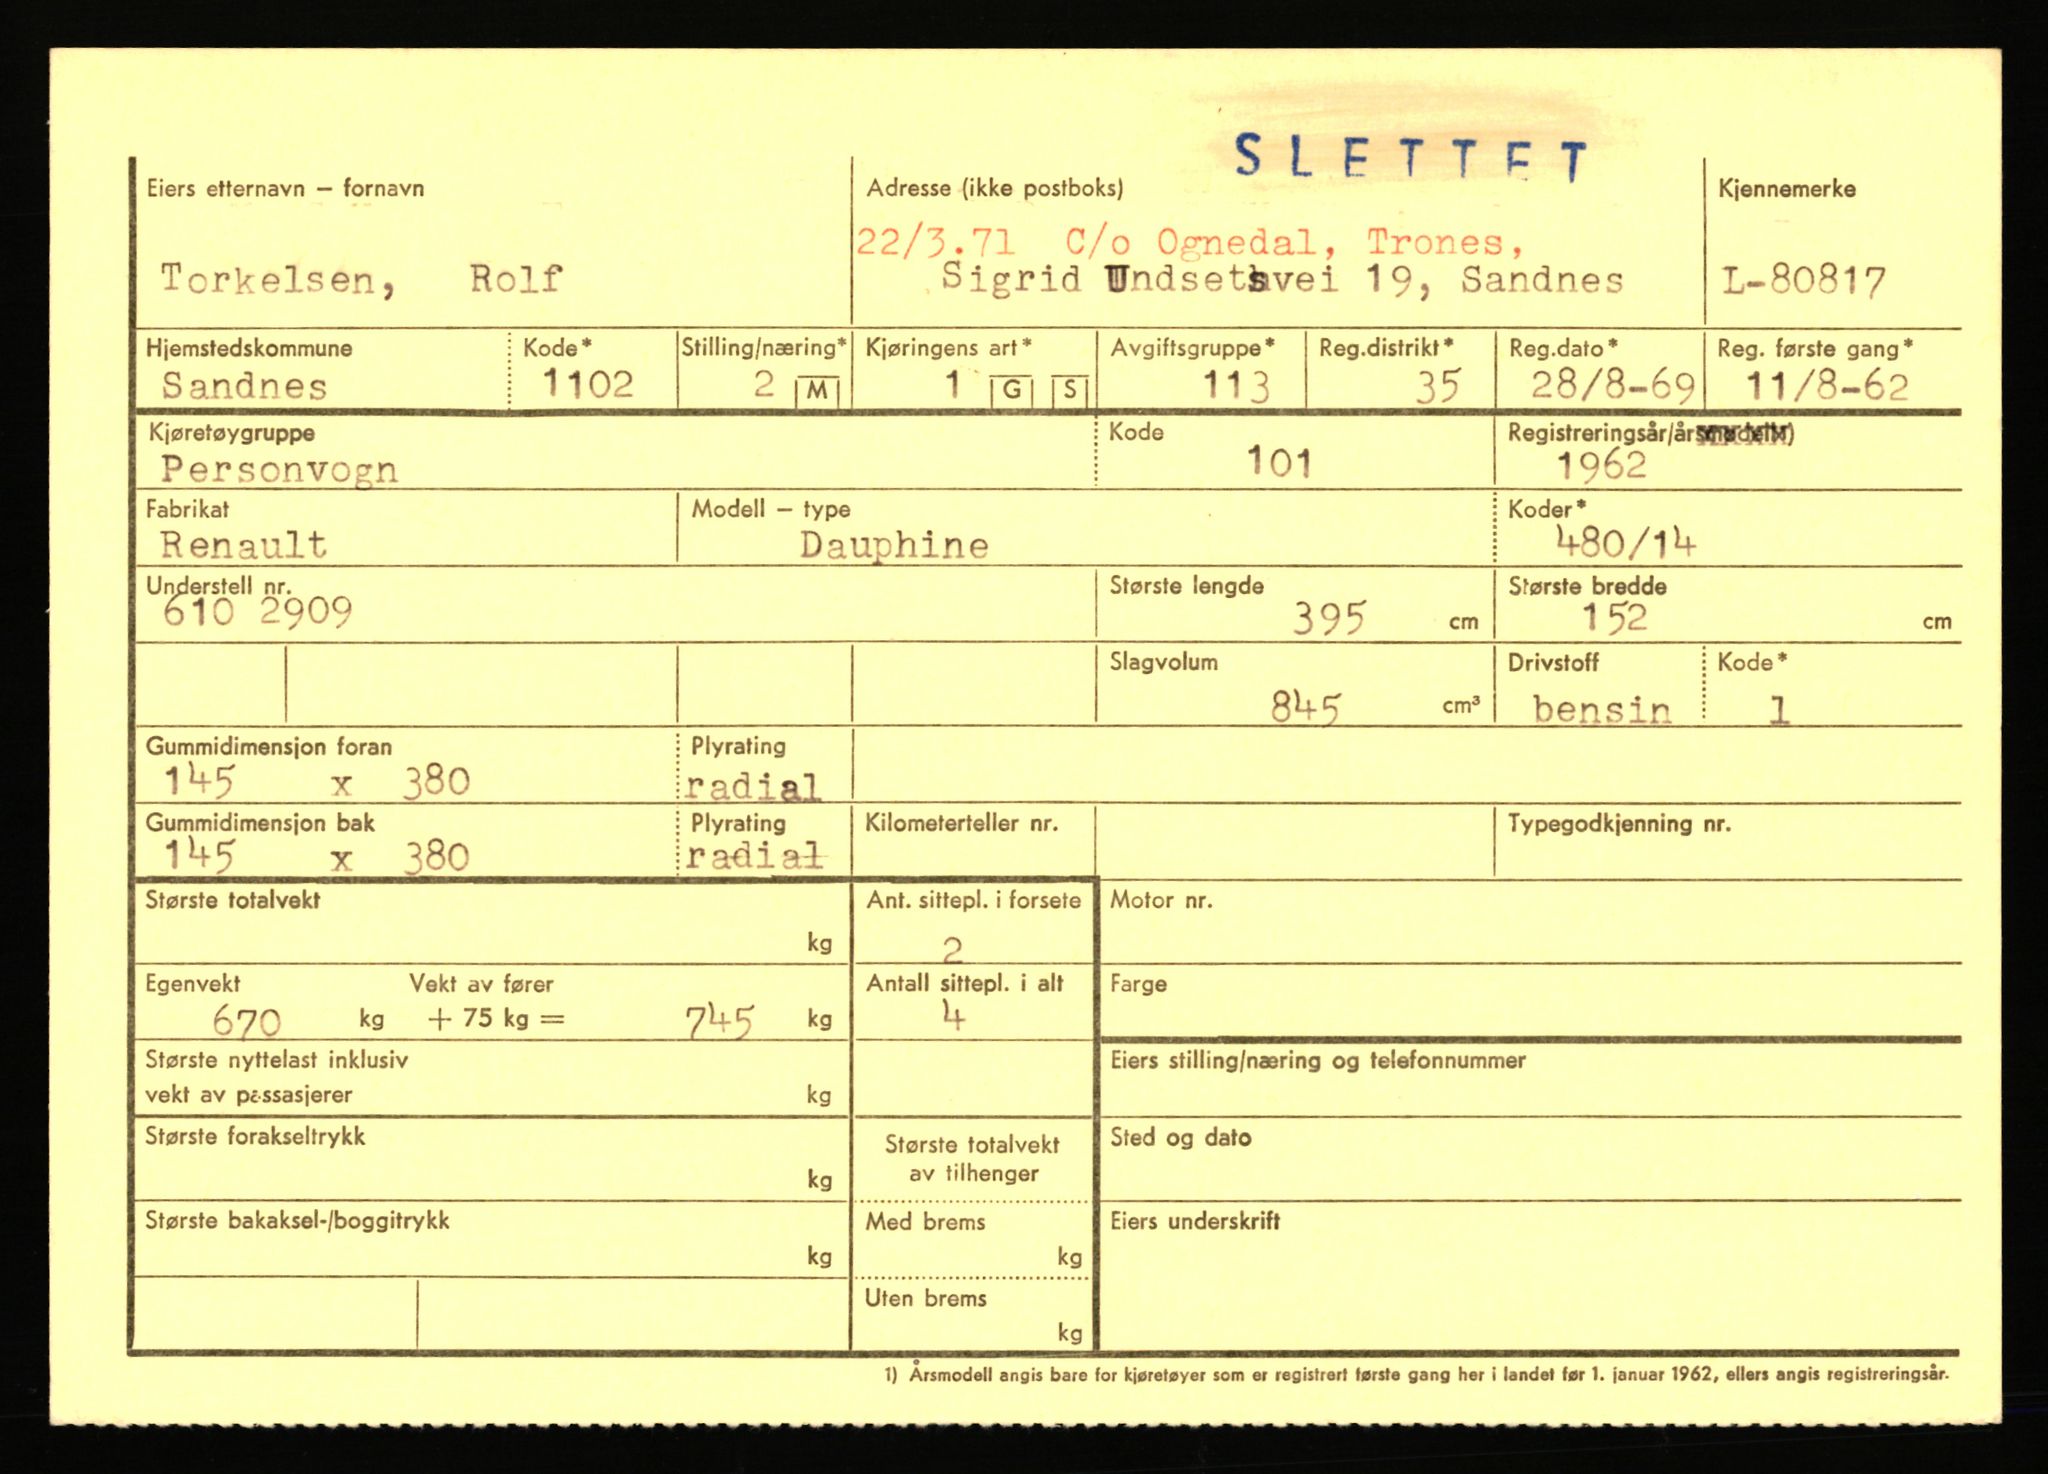 SLETTET
Eiers etternavn – fornavn Adresse (ikke postboks) Kjennemerke
22/3.71 C/o Ognedal, Trones,
Torkelsen, Rolf Sigrid Undsetsvei 19, Sandnes L-80817
Hjemstedskommune Kode* Stilling/næring* Kjøringens art* Avgiftsgruppe* Reg.distrikt* Reg.dato* Reg. første gang*
Sandnes 1102 2 M 1 G S 113 35 28/8-69 11/8-62
Kjøretøygruppe Kode Registreringsår/årsmodell1)
Personvogn 101 1962
Fabrikat Modell – type Koder*
Renault Dauphine 480/14
Understell nr. Største lengde Største bredde
610 2909 395 cm 152 cm
Slagvolum Drivstoff Kode*
845 cm³ bensin 1
Gummidimensjon foran Plyrating
145 x 380 radial
Gummidimensjon bak Plyrating Kilometerteller nr. Typegodkjenning nr.
145 x 380 radial
Største totalvekt Ant. sittepl. i forsete Motor nr.
kg 2
Egenvekt Vekt av fører Antall sittepl. i alt Farge
670 kg + 75 kg = 745 kg 4
Største nyttelast inklusiv Eiers stilling/næring og telefonnummer
vekt av passasjerer kg
Største forakseltrykk Største totalvekt Sted og dato
kg av tilhenger
Største bakaksel-/boggitrykk Med brems Eiers underskrift
kg kg
Uten brems
kg
1) Årsmodell angis bare for kjøretøyer som er registrert første gang her i landet før 1. januar 1962, ellers angis registreringsår.